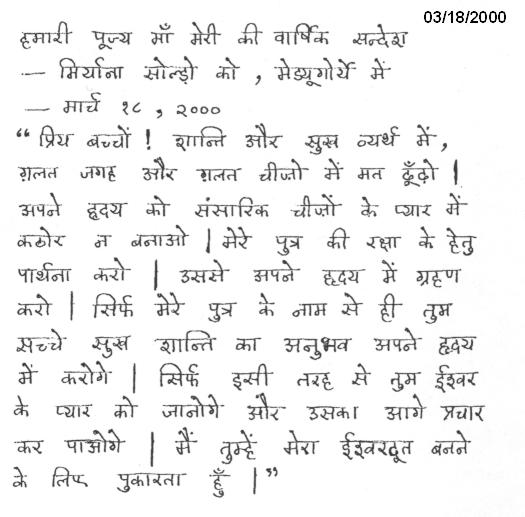 03/18/2000
हमारी पूज्य माँ मेरी की वार्षिक सन्देश
— मिर्याना सोल्ड़ो को , मेड्यूगोर्ये में
— मार्च १८ , २०००
“ प्रिय बच्चों ! शान्ति और सुख व्यर्थ में ,
ग़लत जगह और ग़लत चीज़ो में मत ढूँढ़ो |
अपने हृदय को संसारिक चीज़ों के प्यार में
कठोर न बनाओ | मेरे पुत्र की रक्षा के हेतु
पार्थना करो | उससे अपने हृदय में ग्रहण
करो | सिर्फ मेरे पुत्र के नाम से ही तुम
सच्चे सुख शान्ति का अनुभव अपने हृदय
में करोगे | सिर्फ इसी तरह से तुम ईश्वर
के प्यार को जानोगे और उसका आगे प्रचार
कर पाओगे | मैं तुम्हें मेरा ईश्वरदूत बनने
के लिए पुकारता हुँ | ”